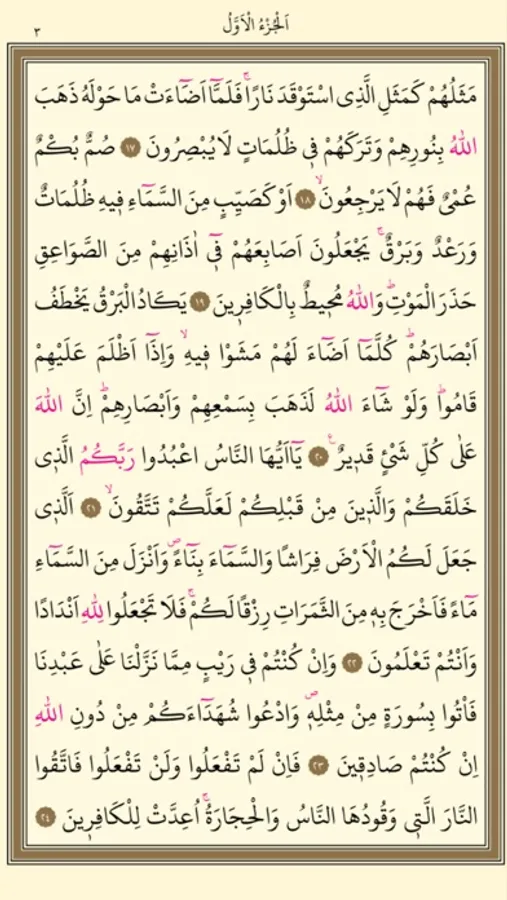 اَلْجُزْءُ الْاَوَّلُ
٣
مَثَلُهُمْ كَمَثَلِ الَّذِى اسْتَوْقَدَ نَارًاۚ فَلَمَّٓا اَضَٓاءَتْ مَا حَوْلَهُ ذَهَبَ
اللّٰهُ بِنُورِهِمْ وَتَرَكَهُمْ فٖى ظُلُمَاتٍ لَا يُبْصِرُونَ ١٧ صُمٌّ بُكْمٌ
عُمْىٌ فَهُمْ لَا يَرْجِعُونَۙ ١٨ اَوْ كَصَيِّبٍ مِنَ السَّمَٓاءِ فٖيهِ ظُلُمَاتٌ
وَرَعْدٌ وَبَرْقٌۚ يَجْعَلُونَ اَصَابِعَهُمْ فٖٓى اٰذَانِهِمْ مِنَ الصَّوَاعِقِ
حَذَرَ الْمَوْتِؕ وَاللّٰهُ مُحٖيطٌ بِالْكَافِرٖينَ ١٩ يَكَادُ الْبَرْقُ يَخْطَفُ
اَبْصَارَهُمْؕ كُلَّمَٓا اَضَٓاءَ لَهُمْ مَشَوْا فٖيهِۙ وَاِذَٓا اَظْلَمَ عَلَيْهِمْ
قَامُواؕ وَلَوْ شَٓاءَ اللّٰهُ لَذَهَبَ بِسَمْعِهِمْ وَاَبْصَارِهِمْؕ اِنَّ اللّٰهَ
عَلٰى كُلِّ شَیْءٍ قَدٖيرٌࣖ ٢٠ يَٓا اَيُّهَا النَّاسُ اعْبُدُوا رَبَّكُمُ الَّذٖى
خَلَقَكُمْ وَالَّذٖينَ مِنْ قَبْلِكُمْ لَعَلَّكُمْ تَتَّقُونَۙ ٢١ اَلَّذٖى
جَعَلَ لَكُمُ الْاَرْضَ فِرَاشًا وَالسَّمَٓاءَ بِنَٓاءًࣕ وَاَنْزَلَ مِنَ السَّمَٓاءِ
مَٓاءً فَاَخْرَجَ بِهٖ مِنَ الثَّمَرَاتِ رِزْقًا لَكُمْۚ فَلَا تَجْعَلُوا لِلّٰهِ اَنْدَادًا
وَاَنْتُمْ تَعْلَمُونَ ٢٢ وَاِنْ كُنْتُمْ فٖى رَيْبٍ مِمَّا نَزَّلْنَا عَلٰى عَبْدِنَا
فَاْتُوا بِسُورَةٍ مِنْ مِثْلِهٖࣕ وَادْعُوا شُهَدَٓاءَكُمْ مِنْ دُونِ اللّٰهِ
اِنْ كُنْتُمْ صَادِقٖينَ ٢٣ فَاِنْ لَمْ تَفْعَلُوا وَلَنْ تَفْعَلُوا فَاتَّقُوا
النَّارَ الَّتٖى وَقُودُهَا النَّاسُ وَالْحِجَارَةُۚ اُعِدَّتْ لِلْكَافِرٖينَ ٢٤